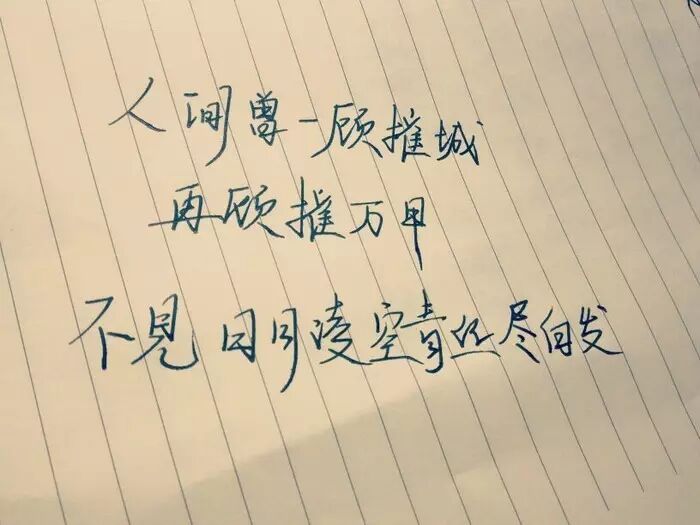 人间曾一顾摧城
再顾摧万甲
不見日月凌空青丝尽白发